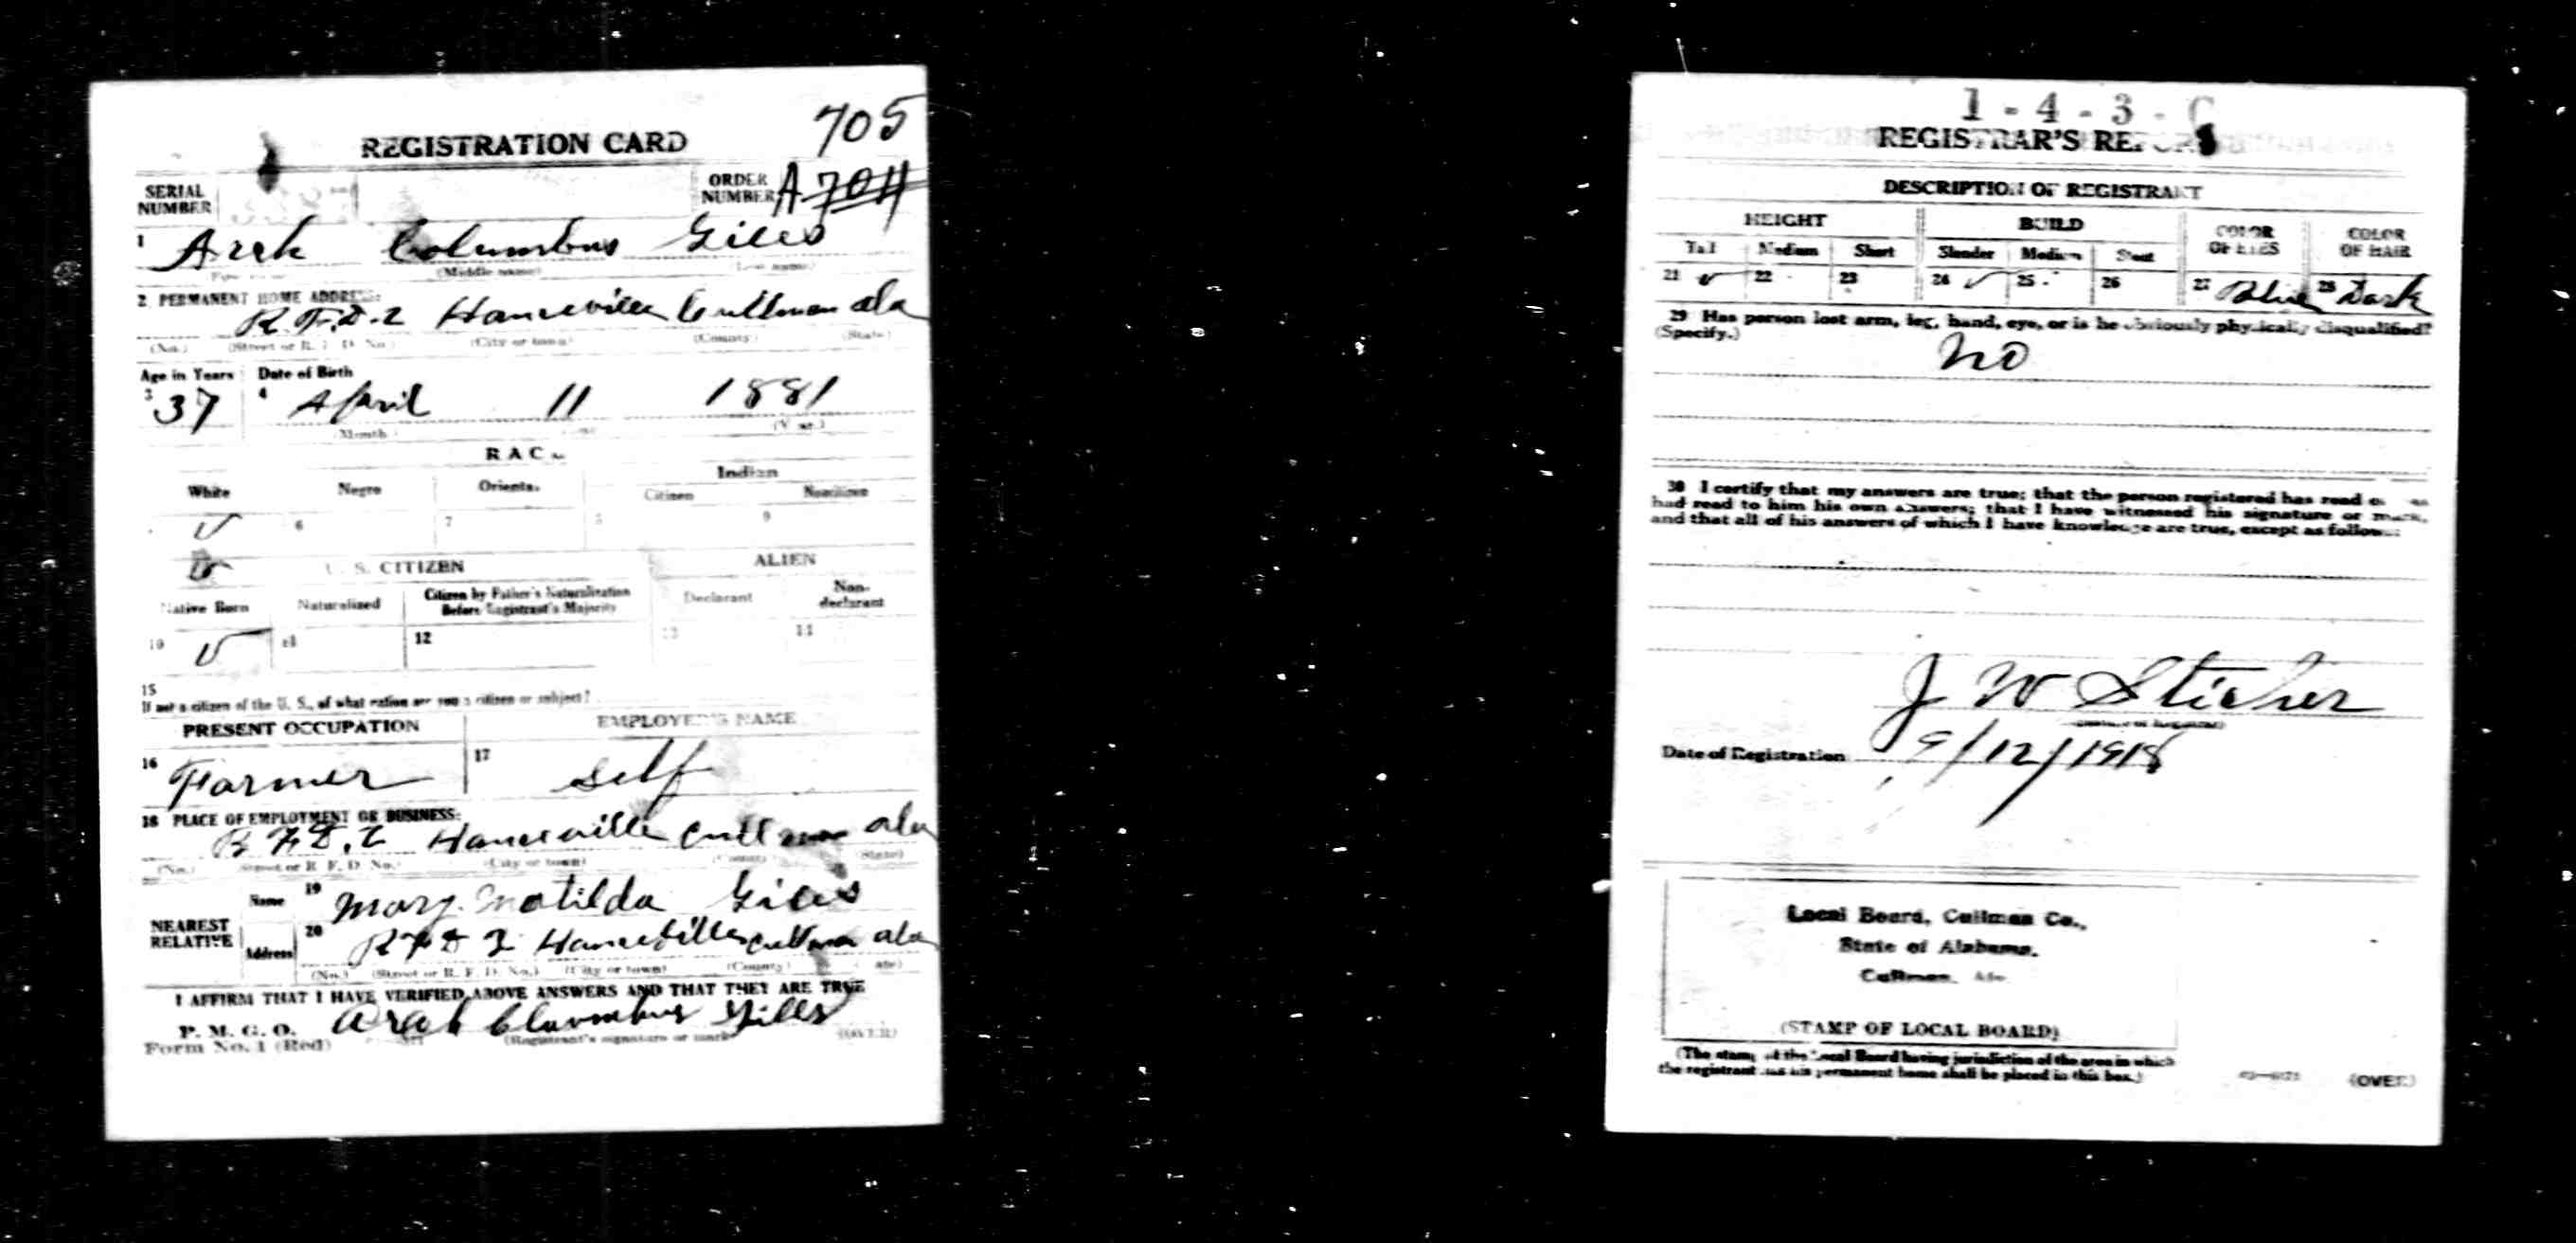 705
REGISTRATION CARD
SERIAL NUMBER
ORDER NUMBER A 704
1 Arah Columbus Giles
(Middle name) (Last name)
2 PERMANENT HOME ADDRESS:
R.F.D. 2 Hanceville Cullman ala
(No.) (Street or R. F. D. No.) (City or town) (County) (State)
Age in Years Date of Birth
3 37 4 April 11 1881
(Month) (Year.)
RACE
White Negro Oriental Indian
Citizen Noncitizen
6 7 8 9
U. S. CITIZEN ALIEN
Native Born Naturalized Citizen by Father's Naturalization Before Registrant's Majority Declarant Non-declarant
10 11 12 13 14
15
If not a citizen of the U. S., of what nation are you a citizen or subject?
PRESENT OCCUPATION EMPLOYER'S NAME
16 Farmer 17 self
18 PLACE OF EMPLOYMENT OR BUSINESS:
R F D. 2 Hanceville Cullman ala
(No.) (Street or R. F. D. No.) (City or town) (County) (State)
NEAREST RELATIVE
Name 19 Mary Matilda Giles
Address 20 R F D 2 Hanceville Cullman ala
(No.) (Street or R. F. D. No.) (City or town) (County) (State)
I AFFIRM THAT I HAVE VERIFIED ABOVE ANSWERS AND THAT THEY ARE TRUE
P. M. G. O.
Form No. 1 (Red) Arah Cloumbus Gills
(Registrant's signature or mark) (OVER)
1 - 4 - 3 - C
REGISTRAR'S REPORT
DESCRIPTION OF REGISTRANT
HEIGHT BUILD COLOR OF EYES COLOR OF HAIR
Tall Medium Short Slender Medium Stout
21 22 23 24 25 26 27 Blue 28 Dark
29 Has person lost arm, leg, hand, eye, or is he obviously physically disqualified?
(Specify.)
no
30 I certify that my answers are true; that the person registered has read or has
had read to him his own answers; that I have witnessed his signature or mark,
and that all of his answers of which I have knowledge are true, except as follows:
J W Sticher
(Signature of Registrar)
Date of Registration 9/12/1918
Local Board, Cullman Co.,
State of Alabama.
Cullman, Ala.
(STAMP OF LOCAL BOARD)
(The stamp of the Local Board having jurisdiction of the area in which
the registrant has his permanent home shall be placed in this box.)
(OVER)